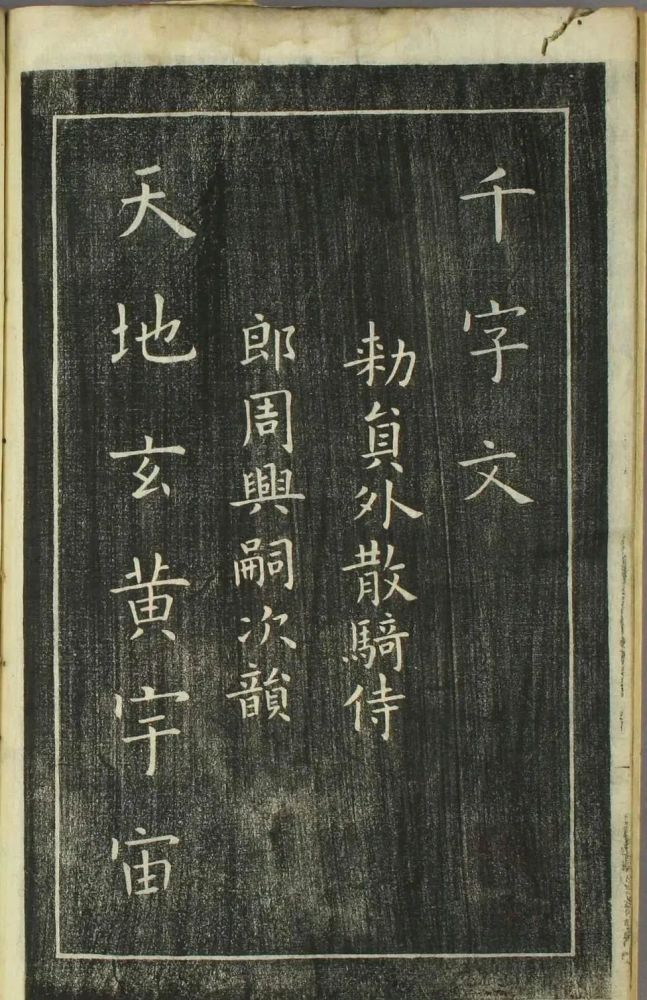 千字文
勑貟外散騎侍
郎周興嗣次韻
天地玄黄宇宙